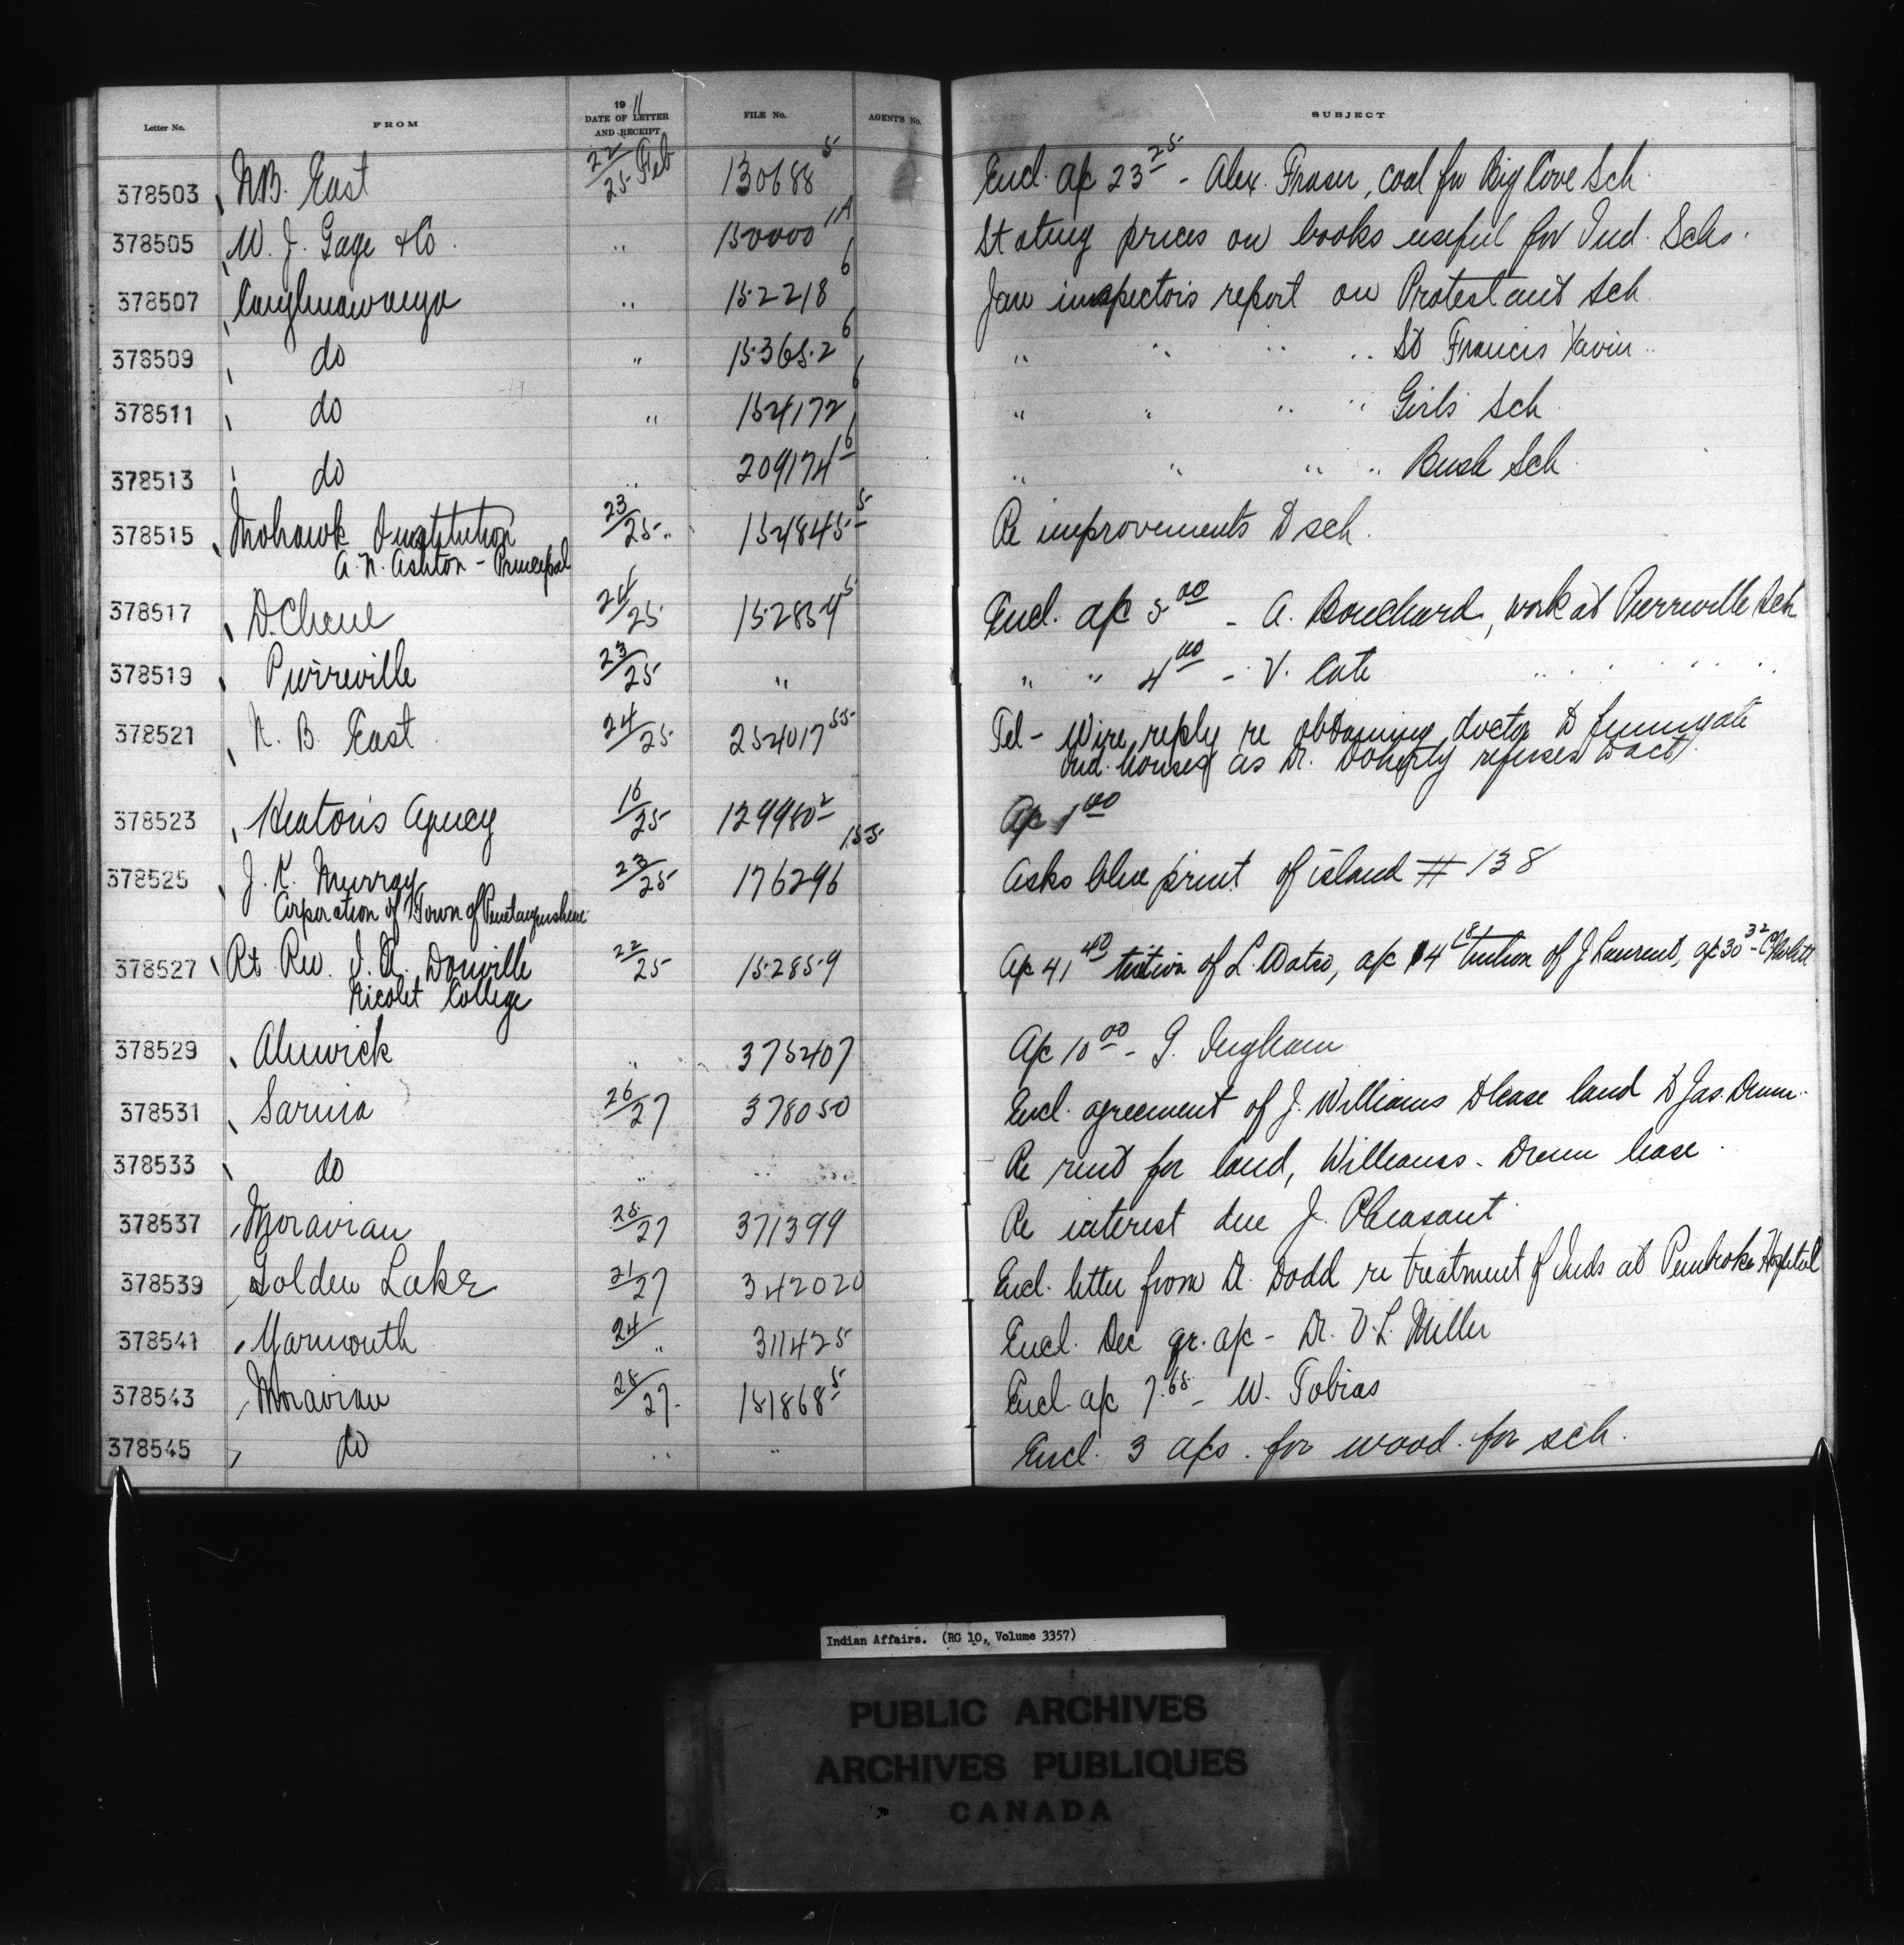 Letter No. FROM 1911 DATE OF LETTER AND RECEIPT FILE No. AGENTS No. SUBJECT
378503 N.B. East 22/25 Feb 130688 5 Encl. a/c 23 25 - Alex. Fraser, coal for Big Cove Sch.
378505 W. J. Gage & Co. " 150000 11A Stating prices on books useful for Ind. Schs.
378507 Caughnawaga " 152218 6 Jan inspectors report on Protestant Sch
378509 do " 153652 6 " " " " St Francis Xavier "
378511 do " 154172 6 " " " " Girls Sch
378513 do " 209174 6 " " " " Bush Sch
378515 Mohawk Institution 23/25 " 154845 5 Re improvements to sch.
A. N. Ashton - Principal
378517 D. Chene 24/25 152859 5 Encl. a/c 5 00 - A. Bouchard, work at Pierreville Sch
378519 Pierreville 23/25 " " " 4 00 - V. Cote " " " "
378521 N. B. East 24/25 254017 55 Tel - Wire reply re obtaining doctor to fumigate
Ind. houses as Dr. Doherty refuses to act
378523 Heaton's Agency 16/25 129980 2 A/c 1 00
378525 J. K. Murray 23/25 176296 155 Asks blue print of island # 138
Corporation of Town of Penetanguishene
378527 Rt. Rev. Douville 22/25 152859 A/c 41 40 tuition of L. a/c 14 tuition of J Laurent, a/c 30 32
Nicolet College
378529 Alnwick " 375407 A/c 10 00 - G. Ingham
378531 Sarnia 26/27 378050 Encl. agreement of J. Williams to lease land to Jas. Drum.
378533 do " " Re rent for land, Williams - Drum lease.
378537 Moravian 25/27 371399 Re interest due J. Pheasant.
378539 Golden Lake 21/27 342020 Encl. letter from Dr. Dodd re treatment of Inds at Pembroke Hospital
378541 Yarmouth 24/" 311425 Encl. Dec qr. a/c - Dr. V. L. Miller
378543 Moravian 25/27. 151868 5 Encl a/c 7.65 - W. Tobias
378545 do " " Encl. 3 a/cs. for wood for sch.
Indian Affairs. (RG 10, Volume 3357)
PUBLIC ARCHIVES
ARCHIVES PUBLIQUES
CANADA